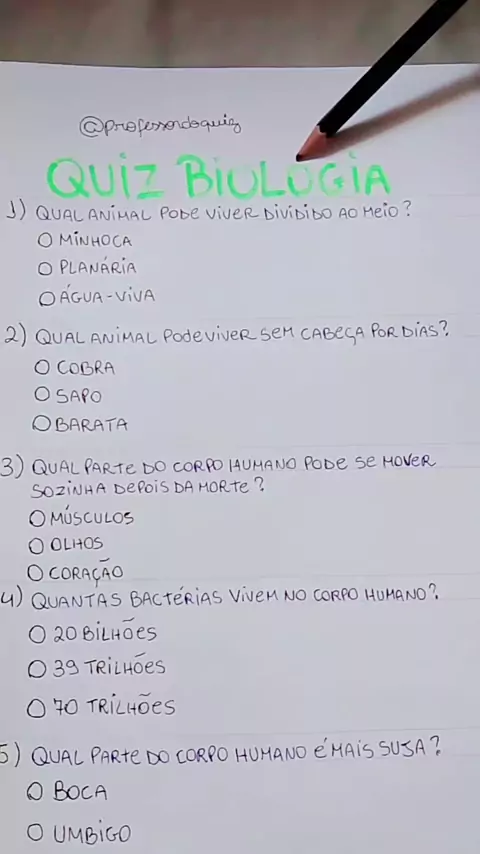 @professordoquiz
QUIZ BIOLOGIA
1) QUAL ANIMAL PODE VIVER DIVIDIDO AO MEIO?
O MINHOCA
O PLANÁRIA
O ÁGUA-VIVA
2) QUAL ANIMAL PODE VIVER SEM CABEÇA POR DIAS?
O COBRA
O SAPO
O BARATA
3) QUAL PARTE DO CORPO HUMANO PODE SE MOVER
SOZINHA DEPOIS DA MORTE?
O MÚSCULOS
O OLHOS
O CORAÇÃO
4) QUANTAS BACTÉRIAS VIVEM NO CORPO HUMANO?
O 20 BILHÕES
O 39 TRILHÕES
O 70 TRILHÕES
5) QUAL PARTE DO CORPO HUMANO É MAIS SUJA?
O BOCA
O UMBIGO